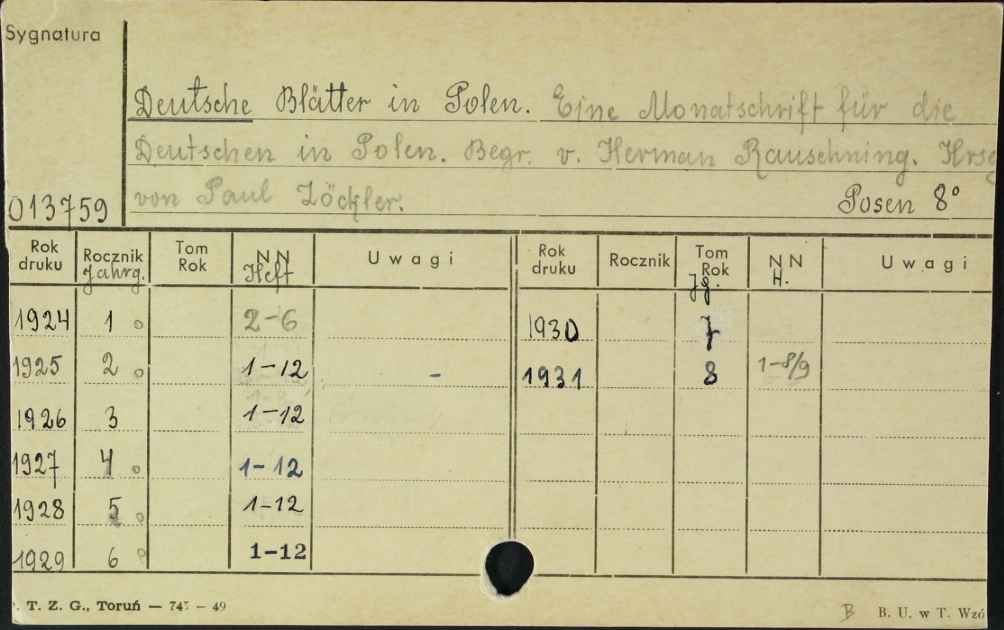 Sygnatura
Deutsche Blätter in Polen. Eine Monatschrift für die
Deutschen in Polen. Begr. v. Herman Rauschning. Hrsg
von Paul Zöckler. Posen 8°
013759
Rok druku Rocznik Jahrg. Tom Rok NN Heft Uwagi Rok druku Rocznik Tom Rok Jg. NN H. Uwagi
1924 1 2-6 1930 7
1925 2 1-12 - 1931 8 1-8/9
1926 3 1-12
1927 4 1-12
1928 5 1-12
1929 6 1-12
. T. Z. G., Toruń — 745 — 49 B B. U. w T. Wzó